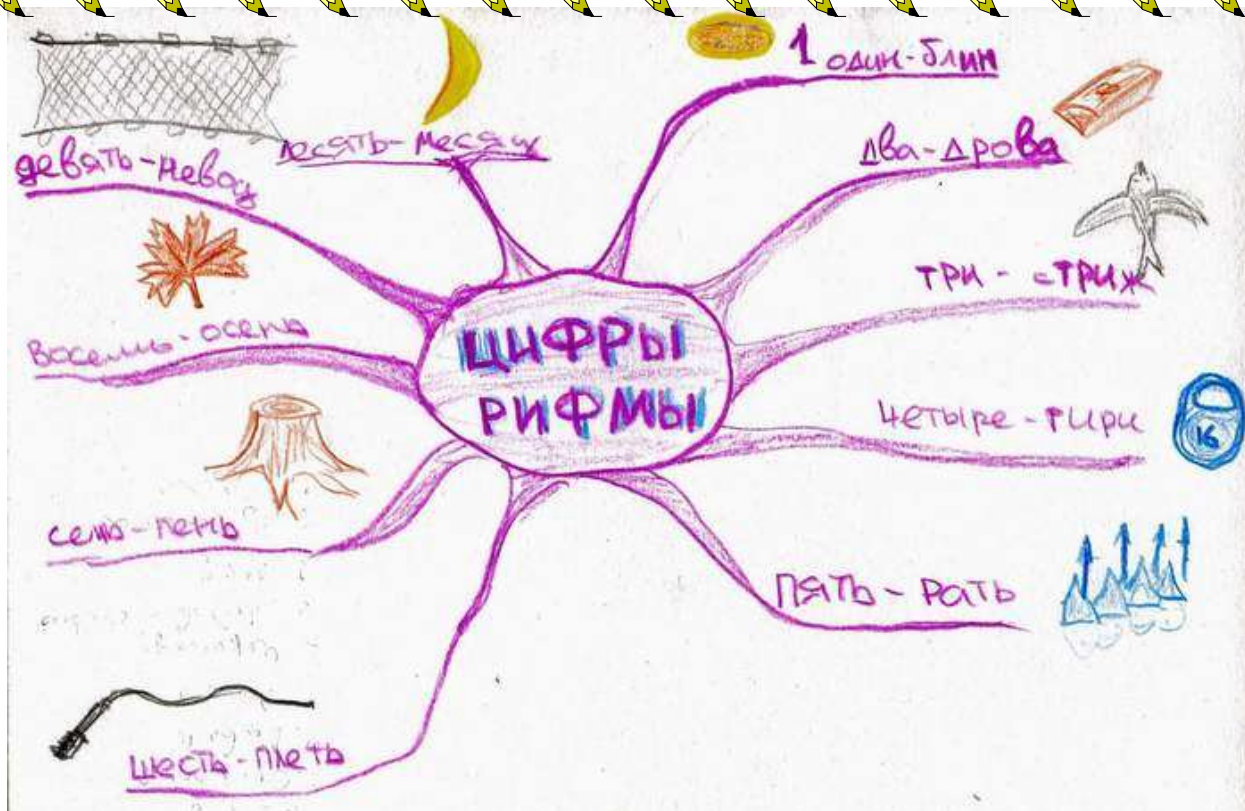 ЦИФРЫ
РИФМЫ
1 один-блин
два-дрова
три - стриж
четыре - гири
16
пять - рать
шесть - плеть
семь - пень
восемь - осень
девять - невод
десять - месяц